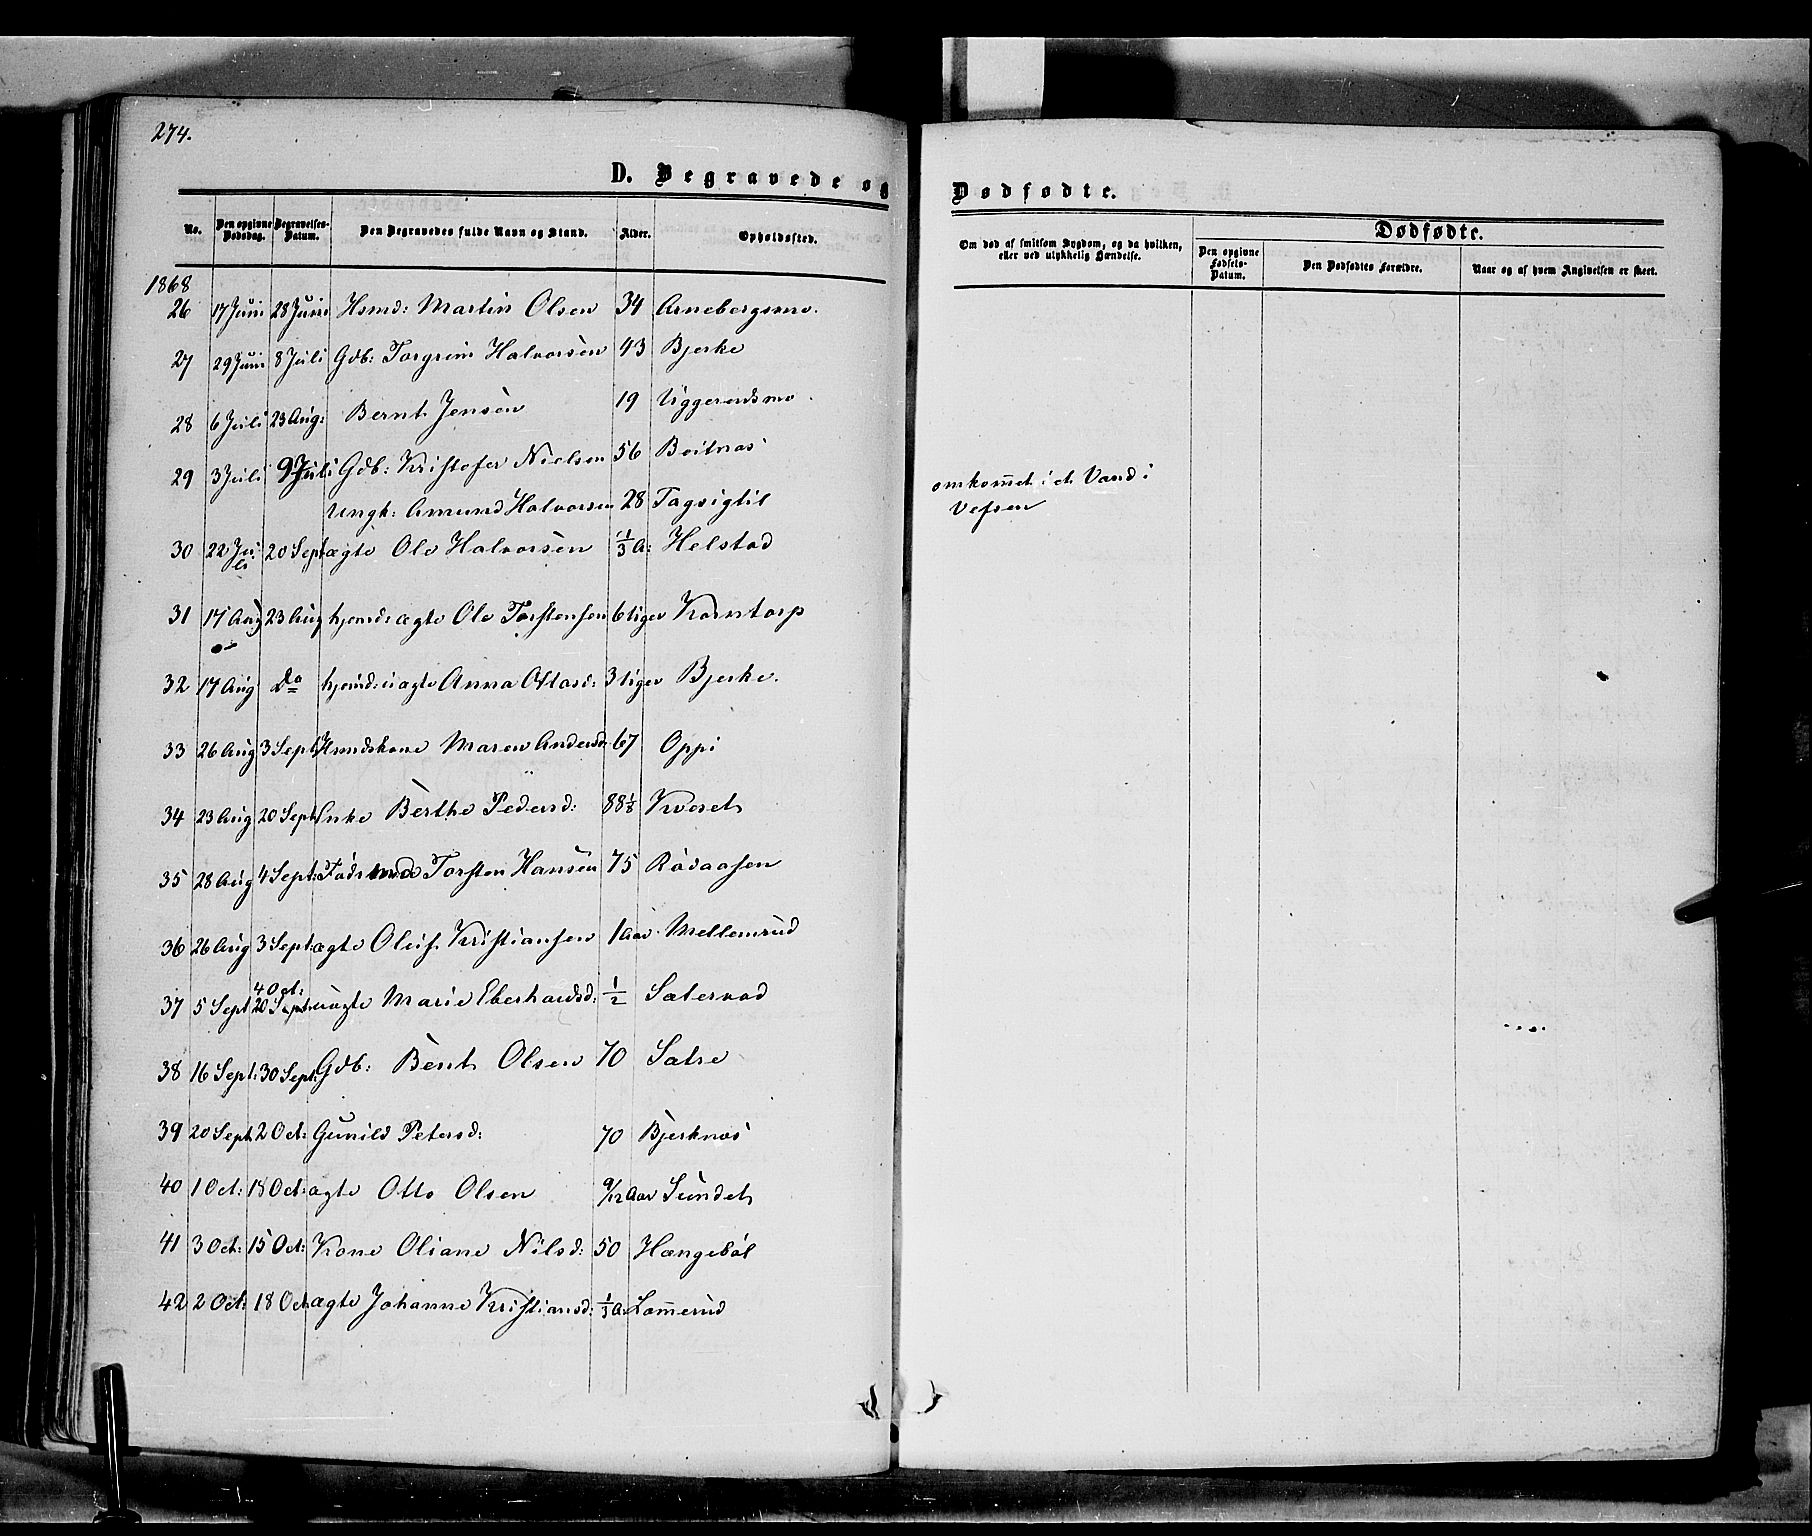 274.
D. Begravede og
No. Den opgivne Dødsdag. Begravelses-Datum. Den Begravedes fulde Navn og Stand. Alder. Opholdssted.
1868
26 17 Juni 28 Juni Hsmd: Martin Olsen 34 Arnebergsmo.
27 29 Juni 8 Juli Gdb: Torgrim Halvorsen 43 Bjerke
28 6 Juli 23 Aug: Bernt Jensen 19 Uggerudsmo.
29 3 Juli 9 Juli Gdb: Kristofer Nielsen 56 Boitnæs
Ungk: Amund Halvorsen 28 Tagsigtil
30 22 Juli 20 Sept ægte Ole Halvorsen 1/3 A: Helstad
31 17 Aug 23 Aug hjemd: ægte Ole Torstensen 6 tiger Korntorp
32 17 Aug Do hjemd: uægte Anna Ottosd: 3 tiger Bjerke.
33 26 Aug 3 Sept Hsmdskone Maren Andersd: 67 Oppi
34 23 Aug 20 Sept Enke Berthe Pedersd: 88 1/8 Kvæset
35 28 Aug 4 Sept: Føderaad Torsten Hansen 75 Rödaasen
36 26 Aug 3 Sept: ægte Oluf Kristiansen 1 Aar Mellemrud
4 Oct:
37 5 Sept 20 Sept: uægte Marie Eberhardsd: 1/2 Sætervad
38 16 Sept: 30 Sept: Gdb: Bent Olsen 70 Sætre
39 20 Sept 2 Oct: Gunild Petersd: 70 Bjerknæs
40 1 Oct: 18 Oct: ægte Otto Olsen 9/12 Aar Sundet
41 3 Oct: 15 Oct: Kone Oliane Nilsd: 50 Hængeböl
42 2 Oct: 18 Oct ægte Johanne Kristiansd: 1/3 A: Lom̅erud
Dødfødte.
Om død af smitsom Sygdom, og da hvilken, eller ved ulykkelig Hændelse.
Dødfødte.
Den opgivne Fødsels-Datum. Den Dødfødtes Forældre. Naar og af hvem Angivelsen er skeet.
omkom̅et i et Vand i
Vefsen